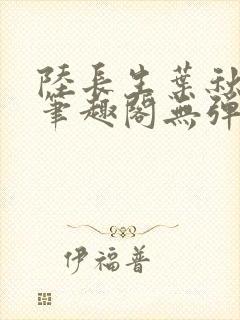 陸長生葉秋
筆趣閣無彈
伊福普